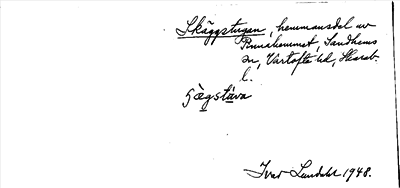 Skäggstugan, hemmansdel av
Rinnahemmet, Sandhems
sn, Vartofta hd, Skarab.
l.
Ivar Lundahl 1948.